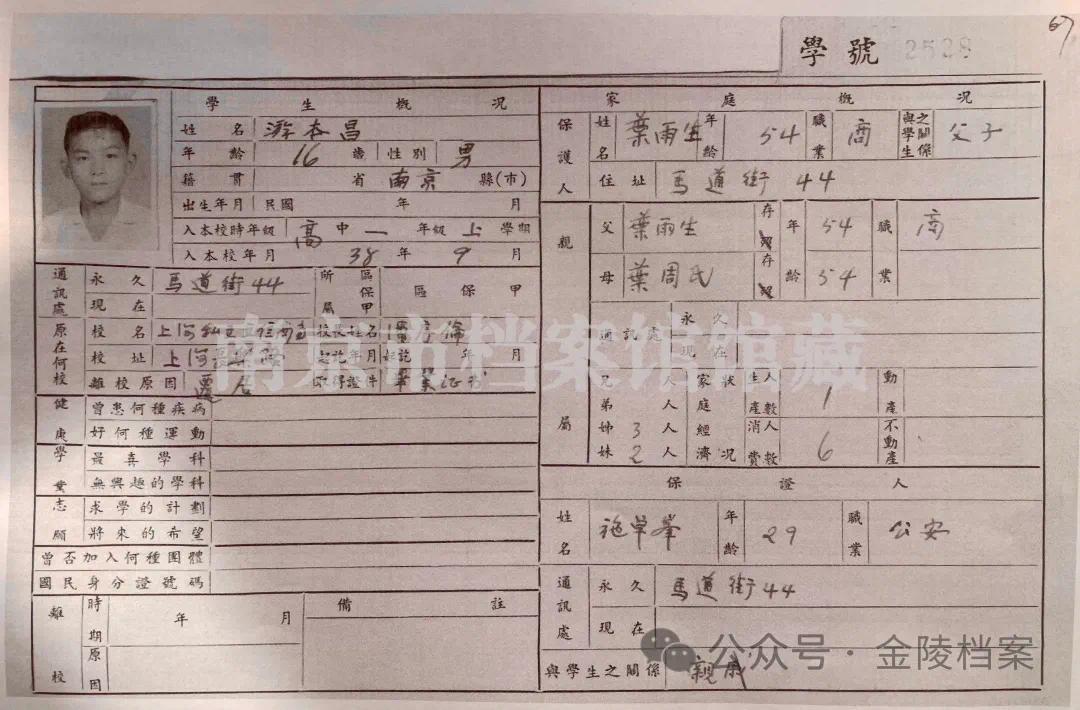 67
學號 2528
學生概況
姓名 游本昌
年齡 16 歲 性別 男
籍貫 省 南京 縣(市)
出生年月 民國 年 月
入本校時年級 高中一年級上學期
入本校年月 38年9月
通訊處 永久 馬道街44 所屬區保甲 區保甲
現在
原在何校 校名 上海私立 校長姓名
校址 上海 起訖年月 起訖 年 月
離校原因 遷居 取得證件 畢業证书
健康 曾患何種疾病
好何種運動
學業 最喜學科
無興趣的學科
志願 求學的計劃
將來的希望
曾否加入何種團體
國民身分證號碼
離校 時期 年 月 備註
原因
家庭概況
保護人 姓名 葉雨生 年齡 54 職業 商 與學生之關係 父子
住址 馬道街 44
親屬 父 葉雨生 存 年齡 54 職業 商
母 葉周氏 存 54
通訊處 永久
現在
兄 人 家庭經濟狀況 生產人數 1 動產
弟 人
姊 3 人 消費人數 6 不動產
妹 2 人
保證人
姓名 施 年齡 29 職業 公安
通訊處 永久 馬道街44
現在
與學生之關係 親戚
南京市档案馆馆藏
公众号·金陵档案